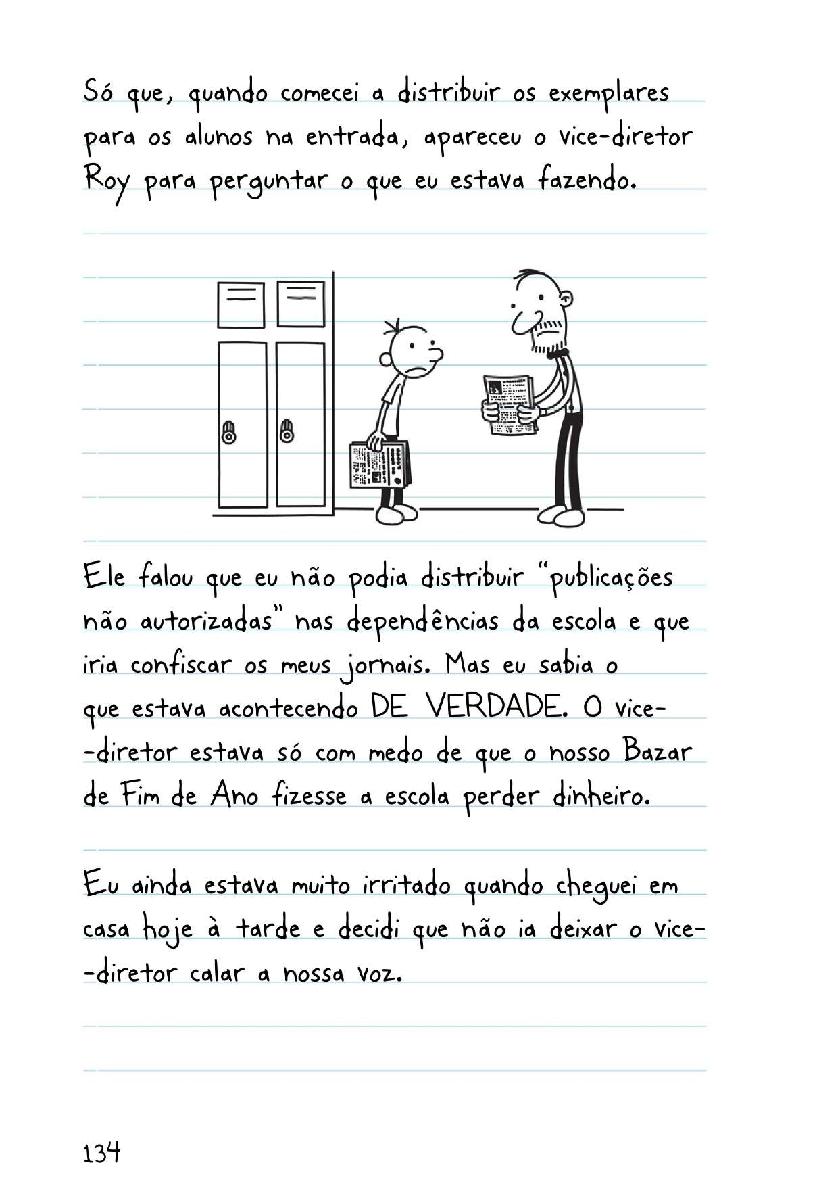 Só que, quando comecei a distribuir os exemplares
para os alunos na entrada, apareceu o vice-diretor
Roy para perguntar o que eu estava fazendo.
Ele falou que eu não podia distribuir “publicações
não autorizadas” nas dependências da escola e que
iria confiscar os meus jornais. Mas eu sabia o
que estava acontecendo DE VERDADE. O vice-
-diretor estava só com medo de que o nosso Bazar
de Fim de Ano fizesse a escola perder dinheiro.
Eu ainda estava muito irritado quando cheguei em
casa hoje à tarde e decidi que não ia deixar o vice-
-diretor calar a nossa voz.
134